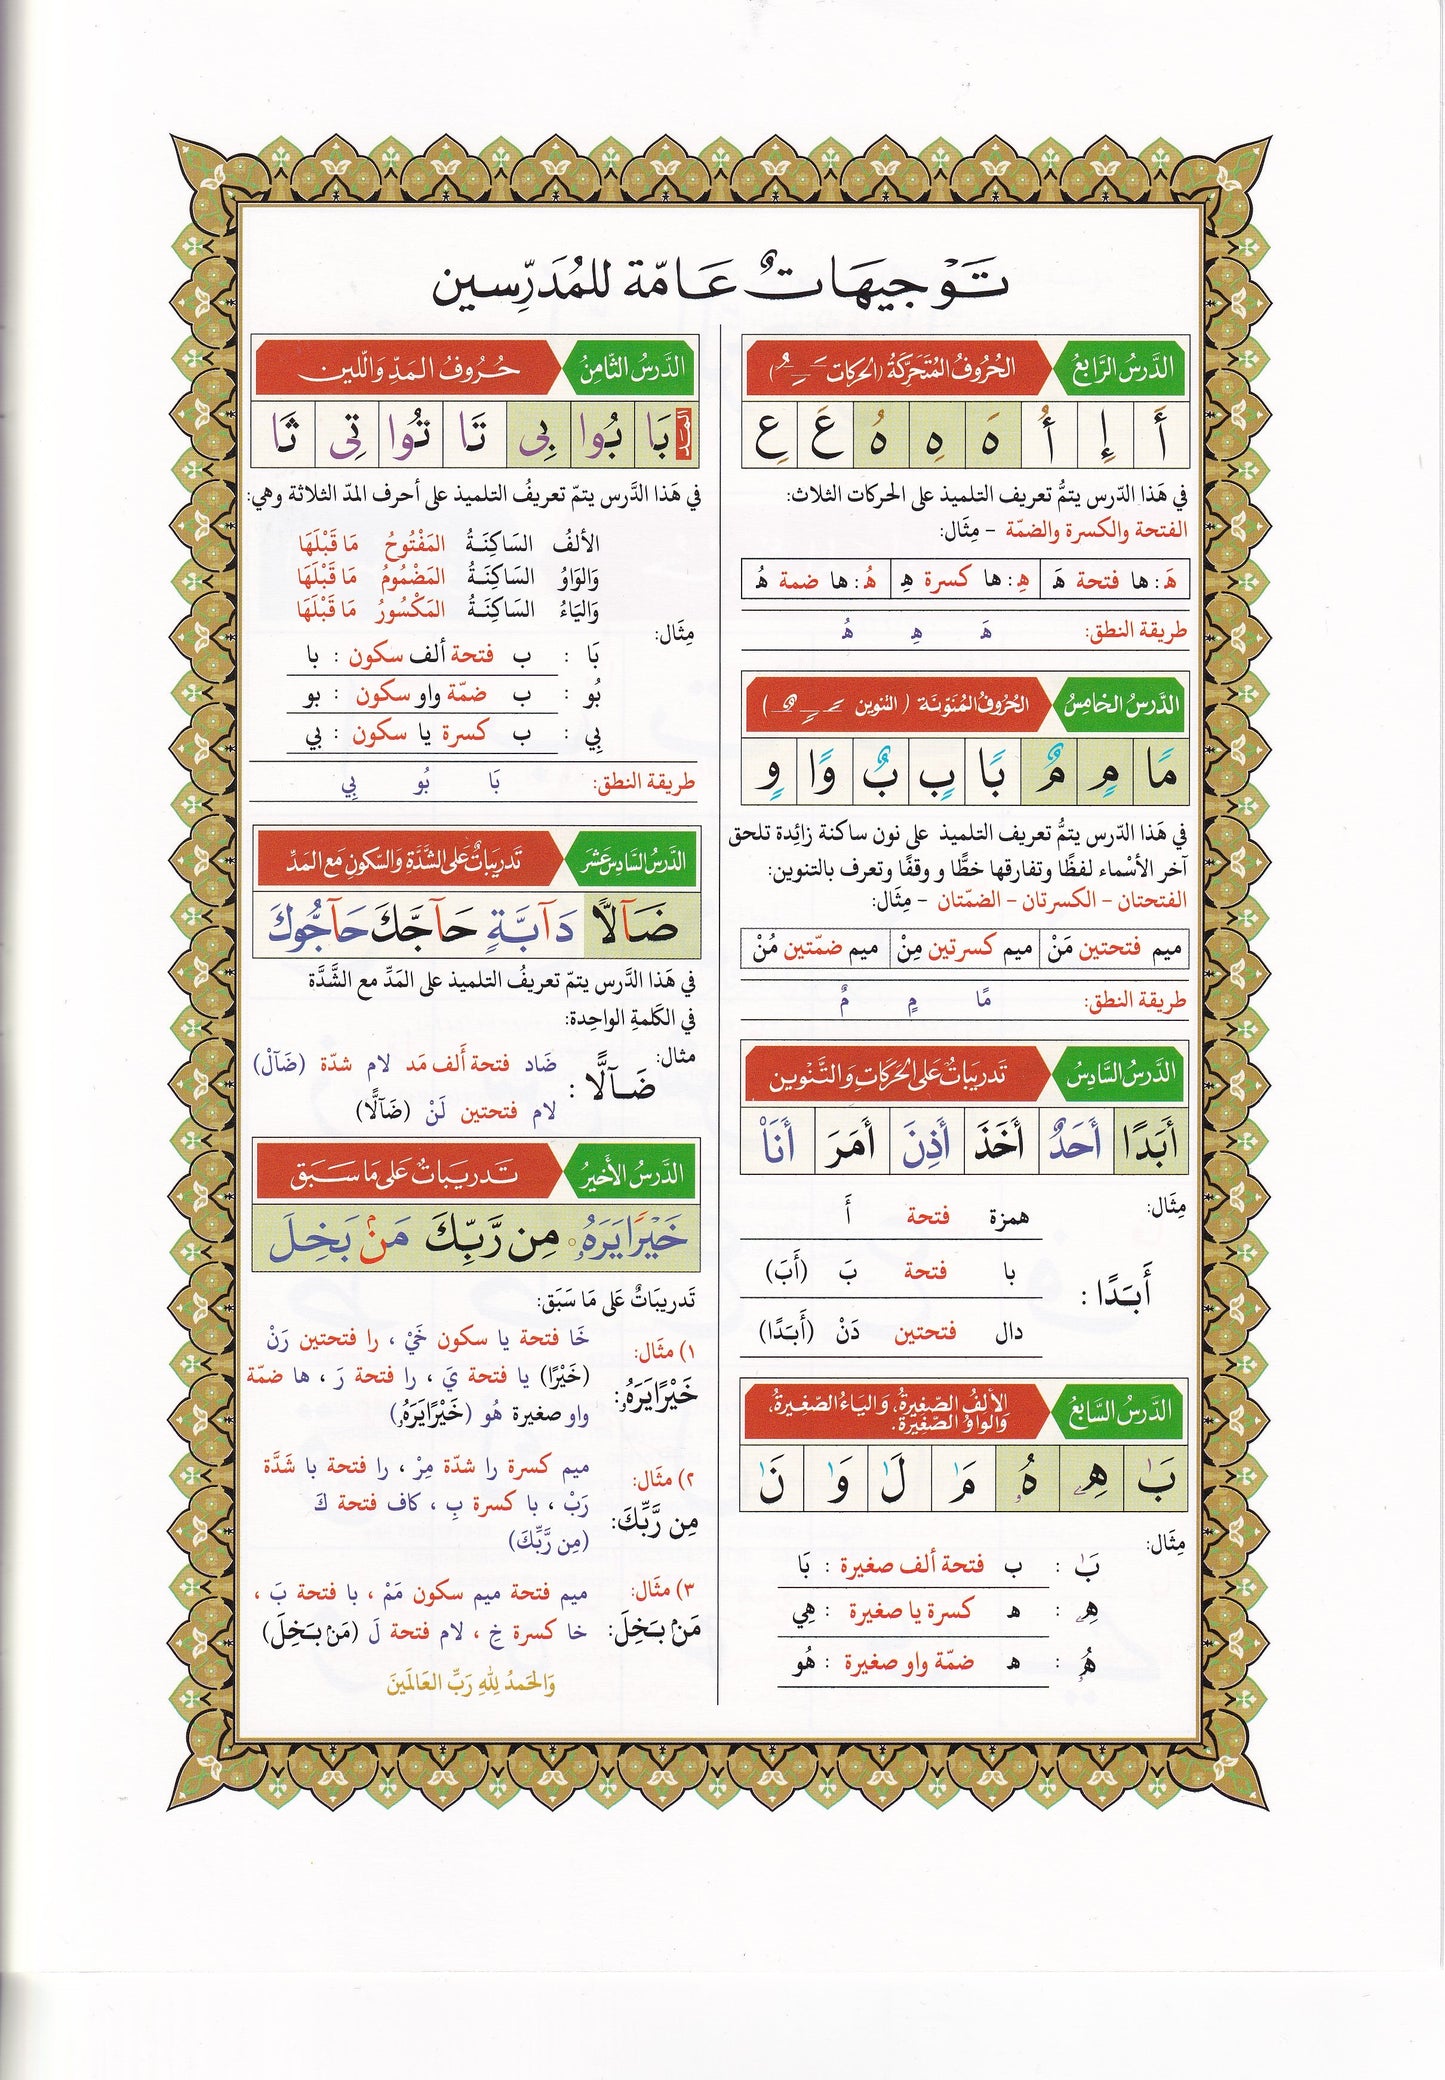 تَوْجِيهَاتٌ عَامّة للمُدَرِّسين
الدَّرسُ الرَّابعُ
الحُرُوفُ المُتَحَرِّكَةُ (الحركات ـَ ـِ ـُ)
أَ إِ أُ هَ هِ هُ عَ عِ
في هَذا الدّرس يتمُّ تعريف التلميذ على الحركات الثلاث:
الفتحة والكسرة والضمّة – مِثَال:
هَ: ها فتحة هَ
هِ: ها كسرة هِ
هُ: ها ضمة هُ
طريقة النطق: هَ هِ هُ
الدَّرسُ الخامِسُ
الحُرُوفُ المُنَوّنَة ( التنوين ـً ـٍ ـٌ )
مًا مٍ مٌ بًا بٍ بٌ وًا وٍ
في هَذا الدّرس يتمُّ تعريف التلميذ على نون ساكنة زائِدة تلحق
آخر الأسْماء لفظًا وتفارقها خطًّا و وقفًا وتعرف بالتنوين:
الفتحتان – الكسرتان – الضمّتان – مِثَال:
ميم فتحتين مَنْ
ميم كسرتين مِنْ
ميم ضمّتين مُنْ
طريقة النطق: مًا مٍ مٌ
الدَّرسُ السَّادِسُ
تَدريبَاتٌ عَلى الحَركَاتِ وَالتَّنْوين
أَبَدًا أَحَدٌ أَخَذَ أَذِنَ أَمَرَ أَنَا۠
مِثَال:
همزة فتحة أَ
أَبَدًا :
با فتحة بَ (أَبَ)
دال فتحتين دَنْ (أَبَدًا)
الدَّرسُ السَّابعُ
الألفُ الصّغيرةُ، وَاليَاءُ الصّغيرةُ،
وَالواوُ الصّغِيرَة.
بَٰ هِۦ هُۥ مَٰ لَٰ وَٰ نَٰ
مِثَال:
بَٰ : ب فتحة ألف صغيرة : بَا
هِۦ : هـ كسرة يا صغيرة : هِي
هُۥ : هـ ضمّة واو صغيرة : هُو
الدَّرسُ الثَّامنُ
حُرُوفُ المَدِّ وَاللّين
المَد بَا بُوا بِى تَا تُوا تِى ثَا
في هَذا الدَّرس يتمّ تعريفُ التلميذ على أحرف المدّ الثلاثة وهي:
الألفُ السَاكِنَةُ المَفْتُوحُ مَا قَبْلَهَا
وَالوَاوُ السَاكِنَةُ المَضْمُومُ مَا قَبْلَهَا
وَاليَاءُ السَاكِنَةُ المَكْسُورُ مَا قَبْلَهَا
مِثَال:
بَا : ب فتحة ألف سكون : با
بُو : ب ضمّة واو سكون : بو
بِي : ب كسرة يا سكون : بي
طريقة النطق: بَا بُو بِي
الدَّرسُ السَّادِسَ عَشَر
تَدريبَاتٌ عَلى الشَّدَّةِ وَالسّكونِ مَعَ المَدِّ
ضَآلًّا دَآبَّةٍ حَآجَّكَ حَآجُّوكَ
في هَذا الدَّرس يتمّ تعريفُ التلميذ على المَدِّ مع الشَّدَّة
في الكَلمةِ الواحِدة:
مثال:
ضَآلًّا :
ضَاد فتحة أَلف مَد لام شدّة (ضَآلْ)
لام فتحتين لَنْ (ضَآلًّا)
الدَّرسُ الأَخيرُ
تَدريبَاتٌ عَلى مَا سَبَق
خَيْرًا يَرَهُۥ مِن رَّبِّكَ مَنۢ بَخِلَ
تَدريبَاتٌ عَلى مَا سَبَق:
١) مثَال:
خَيْرًا يَرَهُۥ:
خَا فتحة يا سكون خَيْ ، را فتحتين رَنْ
(خَيْرًا) يا فتحة يَ ، را فتحة رَ ، ها ضمّة
واو صغيرة هُو (خَيْرًا يَرَهُۥ)
٢) مثَال:
مِن رَّبِّكَ:
ميم كسرة را شدّة مِرْ ، را فتحة با شَدَّة
رَبْ ، با كسرة بِ ، كاف فتحة كَ
(مِن رَّبِّكَ)
٣) مثَال:
مَنۢ بَخِلَ:
ميم فتحة ميم سكون مَمْ ، با فتحة بَ ،
خا كسرة خِ ، لام فتحة لَ (مَنۢ بَخِلَ)
وَالحَمدُ لِلّهِ رَبِّ العَالَمينَ